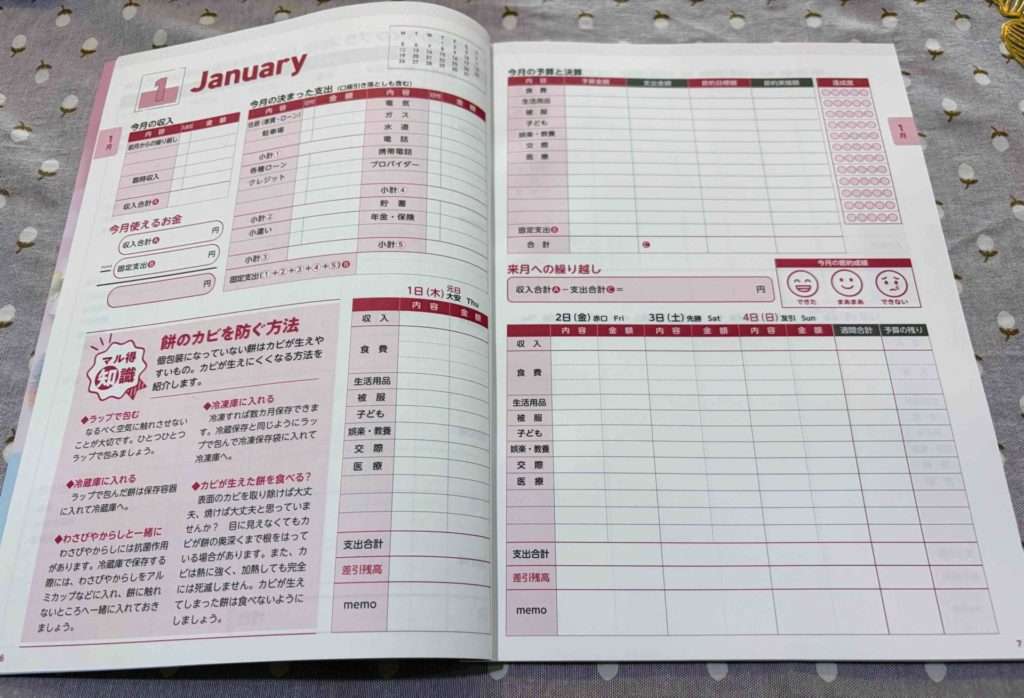 1 January
1月
今月の収入
内容 金額
前月からの繰り越し
臨時収入
収入合計A
今月使えるお金
収入合計A 円
固定支出B 円
円
今月の決まった支出(口座引き落としも含む)
内容 金額 内容 金額
住居(家賃・ローン) 電気
駐車場 ガス
水道
小計1 電話
各種ローン 携帯電話
クレジット プロバイダー
小計4
小計2 貯蓄
小遣い 年金・保険
小計3 小計5
固定支出(1+2+3+4+5)B
マル得
知識
餅のカビを防ぐ方法
個包装になっていない餅はカビが生えや
すいもの。カビが生えにくくなる方法を
紹介します。
◆ラップで包む
なるべく空気に触れさせない
ことが大切です。ひとつひとつ
ラップで包みましょう。
◆冷蔵庫に入れる
ラップで包んだ餅は保存容器
に入れて冷蔵庫へ。
◆わさびやからしと一緒に
わさびやからしには抗菌作用
があります。冷蔵庫で保存する
際には、わさびやからしをアル
ミカップなどに入れ、餅に触れ
ないところへ一緒に入れておき
ましょう。
◆冷凍庫に入れる
冷凍すれば数カ月保存できま
す。冷蔵保存と同じようにラッ
プで包んで冷凍保存袋に入れて
冷凍庫へ。
◆カビが生えた餅を食べる?
表面のカビを取り除けば大丈
夫、焼けば大丈夫と思っていま
せんか? 目に見えなくてもカ
ビが餅の奥深くまで根をはって
いる場合があります。また、カ
ビは熱に強く、加熱しても完全
には死滅しません。カビが生え
てしまった餅は食べないように
しましょう。
1日(木) 元日 大安 Thu
内容 金額
収入
食費
生活用品
被服
子ども
娯楽・教養
交際
医療
支出合計
差引残高
memo
6
今月の予算と決算
内容 予算金額 支出金額 節約目標額 節約実績額 達成度
食費
生活用品
被服
子ども
娯楽・教養
交際
医療
固定支出B
合計 C
1月
来月への繰り越し
収入合計A-支出合計C= 円
今月の節約成績
できた まあまあ できない
2日(金) 赤口 Fri 3日(土) 先勝 Sat 4日(日) 友引 Sun
内容 金額 内容 金額 内容 金額 週間合計 予算の残り
収入
食費
生活用品
被服
子ども
娯楽・教養
交際
医療
支出合計
差引残高
memo
7